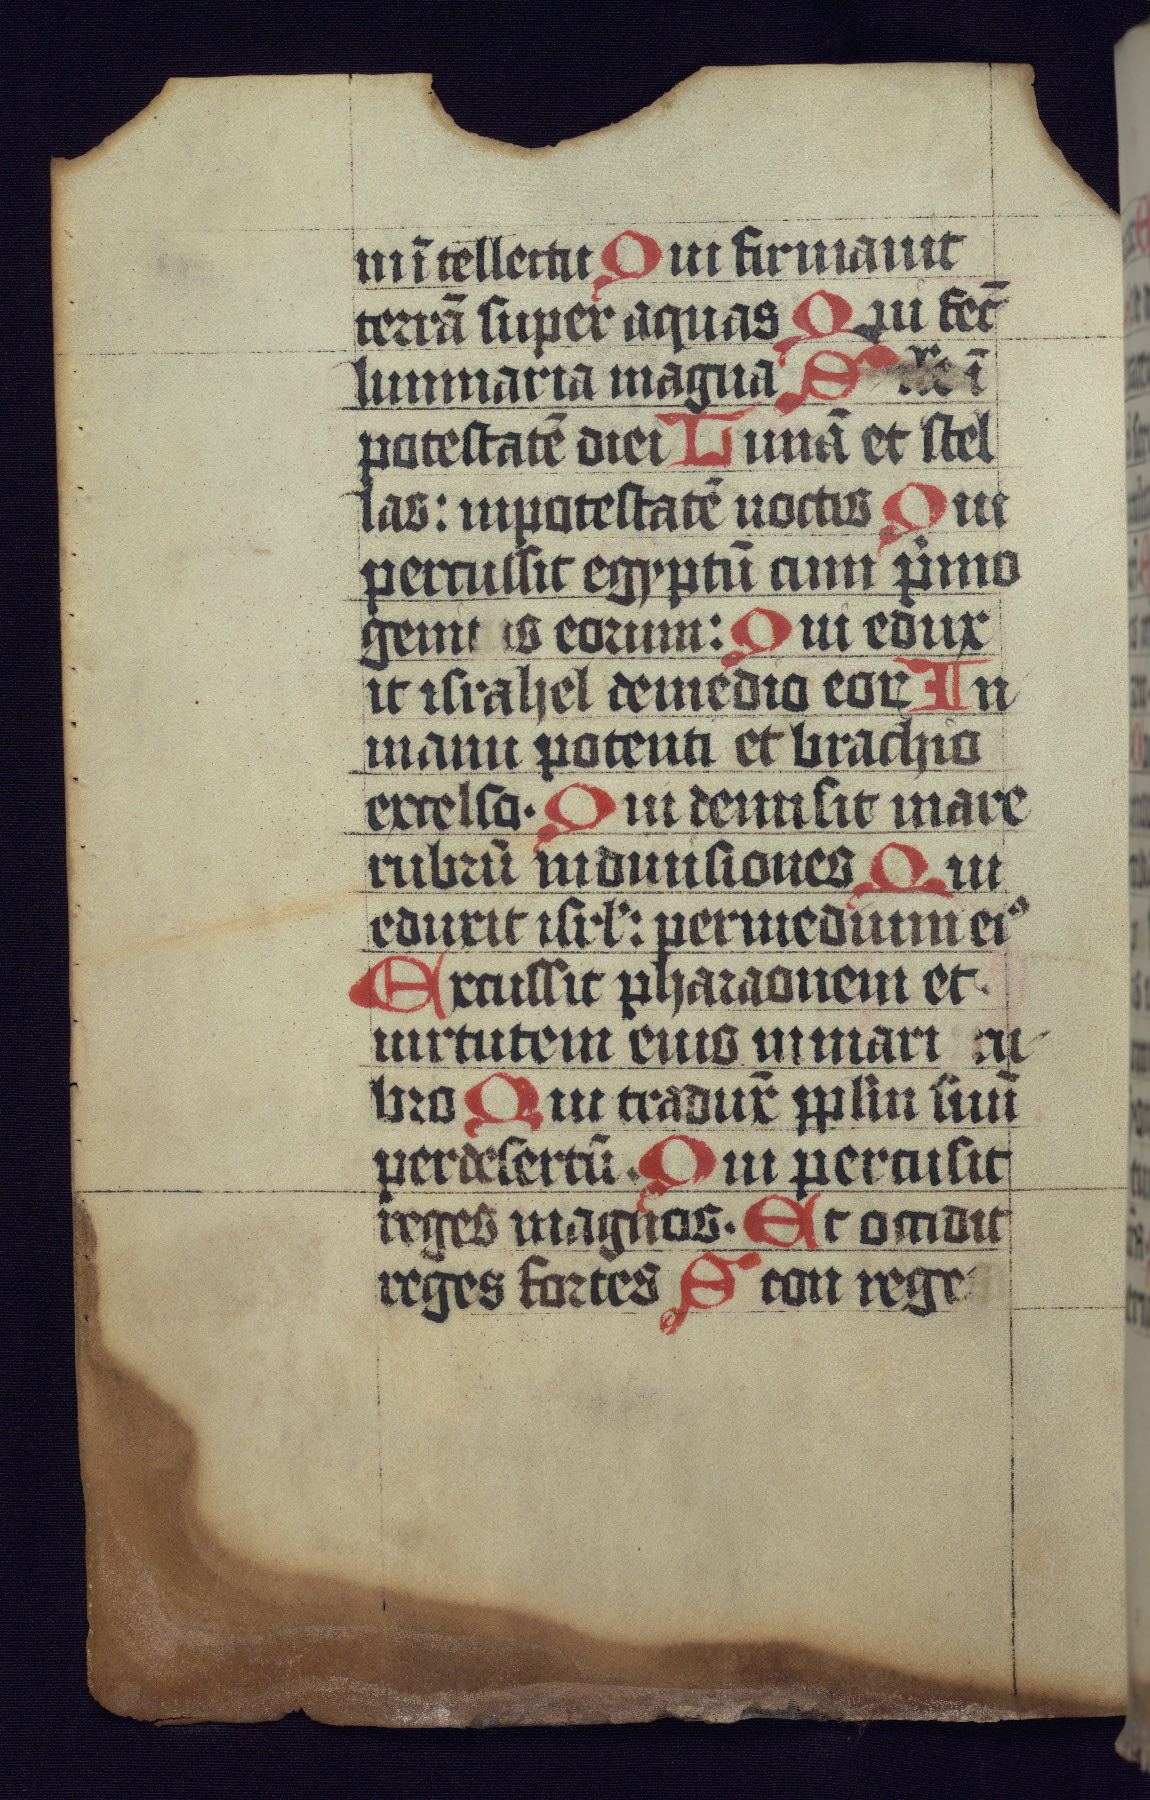 inītellectu Qui firmauit
terrā super aquas Qui fec̄
luminaria magna S ī
potestatē diei Lunā et stel
las: inpotestatē noctis Qui
percussit egyptū cum pͥmo
genit is eorum: Qui edux
it israhel demedio eoꝝ In
manu potenti et brachio
excelso. Qui deuisit mare
rubrū indiuisiones Qui
eduxit isrl': permedium eiꝰ
Excussit pharaonem et
uirtutem eius inmari ru
bro Qui tradux̄ pplm suū
perdesertū. Qui percusit
reges magnos. Et occidit
reges fortes Seon rege